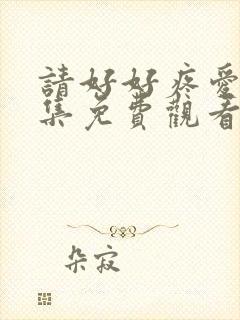 請好好疼愛
集免費觀看
朵寂